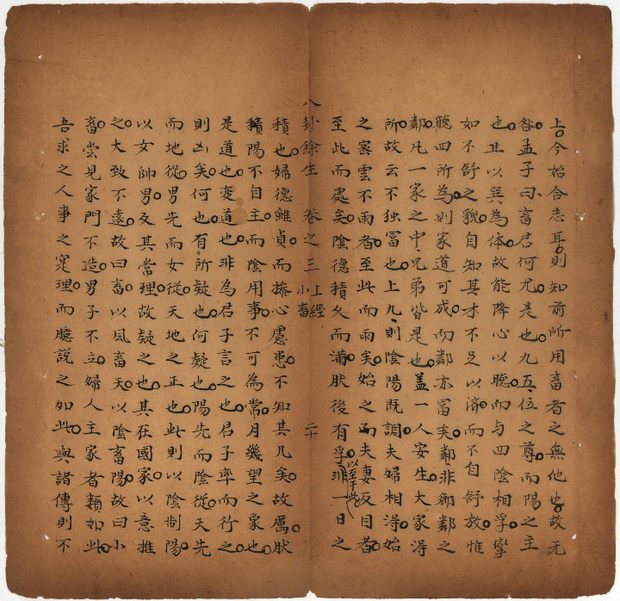 上今始合志耳則知前所用畜者之無他也故无
咎孟子曰畜君何尤是也九五位之尊而陽之主
也且以巽為体故能降心以聽而与四陰相孚孿
如不舒之貌自知其才不足以濟而不自舒放惟
聽四所為則家道可成而鄰亦冨矣鄰非鄉鄰之
鄰凡一家之中兄弟皆是也盖一人安生大家淂
所故云不独冨也上九則陰陽既調夫婦相淂始
之宻雲不雨者至此而雨矣始之而夫妻反目者
至此而處矣陰德積久而滿肰後有孚非一日之
以至于此
八卦餘生 卷之三 上經 小畜 二十
積也婦德雖貞而操心慮患不知其几矣故厲肰
積陽不自主而陰用事不可為常月幾望之象也
是道也变道也非為君子言之也君子率而行之
則凶矣何也有所疑也何疑也陽先而陰従天先
而地從男先而女従天地之正也此則以陰制陽
以女帥男反其常理故疑之也其在國家以意推
之大致不遠故曰畜以風畜天以陰畜陽故曰小
畜尝見家門不造男子不立婦人主家者類如此
吾求之人事之寔理而臆説之如此與諸傳則不